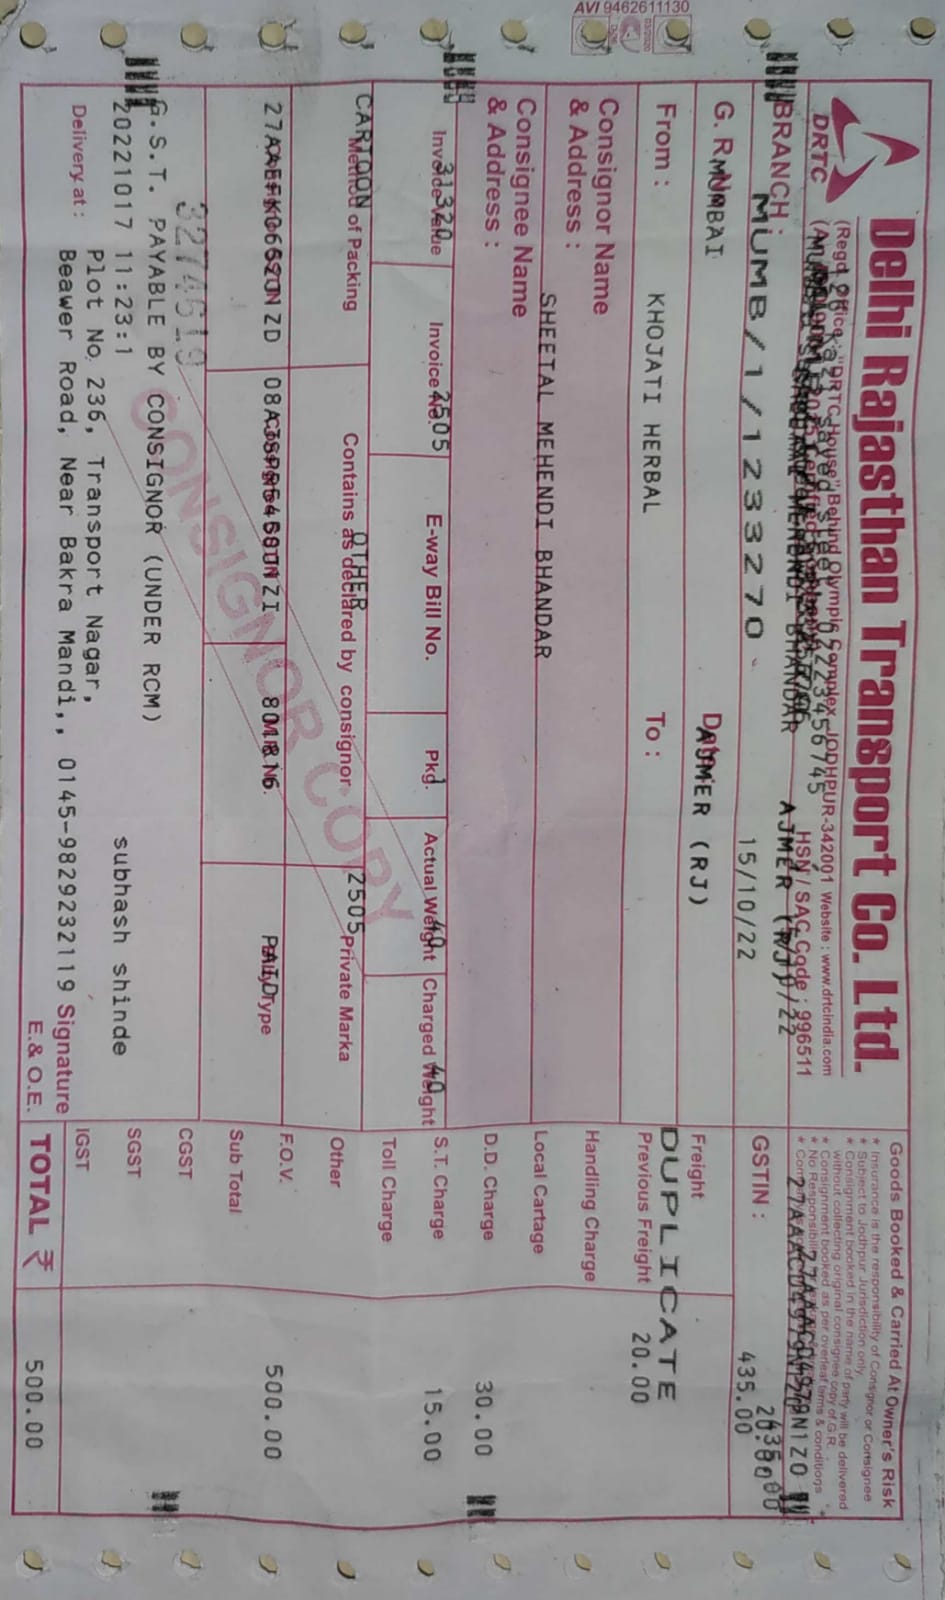 AVI 9462611130
DRTC
Delhi Rajasthan Transport Co. Ltd.
(Regd. Office : "DRTC House" Behind Olympic Complex, JODHPUR-342001 Website : www.drtcindia.com
HSN / SAC Code : 996511
BRANCH :
MEHENDI BHANDAR
AJMER (RJ)
MUMB/1/1233270
15/10/22
G. R. No.
MUMBAI
AJMER (RJ)
From :
KHOJATI HERBAL
To :
Consignor Name
& Address :
SHEETAL MEHENDI BHANDAR
Consignee Name
& Address :
Invoice Value
Invoice No.
E-way Bill No.
Pkg.
Actual Weight
Charged Weight
31320
2505
1
40
40
Method of Packing
Contains as declared by consignor
Private Marka
CARTOON
OTHER
2505
M.R. No.
PAID
CONSIGNOR COPY
3274619
G.S.T. PAYABLE BY CONSIGNOR (UNDER RCM)
20221017 11:23:1
subhash shinde
Plot No. 236, Transport Nagar,
Delivery at :
Beawer Road, Near Bakra Mandi,, 0145-9829232119
Signature
E.& O.E.
Goods Booked & Carried At Owner's Risk
* Insurance is the responsibility of Consignor or Consignee
* Subject to Jodhpur Jurisdiction only.
* Consignment booked in the name of party will be delivered
without collecting original consignee copy of G.R.
* Consignment booked as per overleaf terms & conditions
GSTIN :
Freight 435.00
DUPLICATE
Previous Freight 20.00
Handling Charge
Local Cartage
D.D. Charge 30.00
S.T. Charge 15.00
Toll Charge
Other
F.O.V.
Sub Total 500.00
CGST
SGST
IGST
TOTAL ₹ 500.00